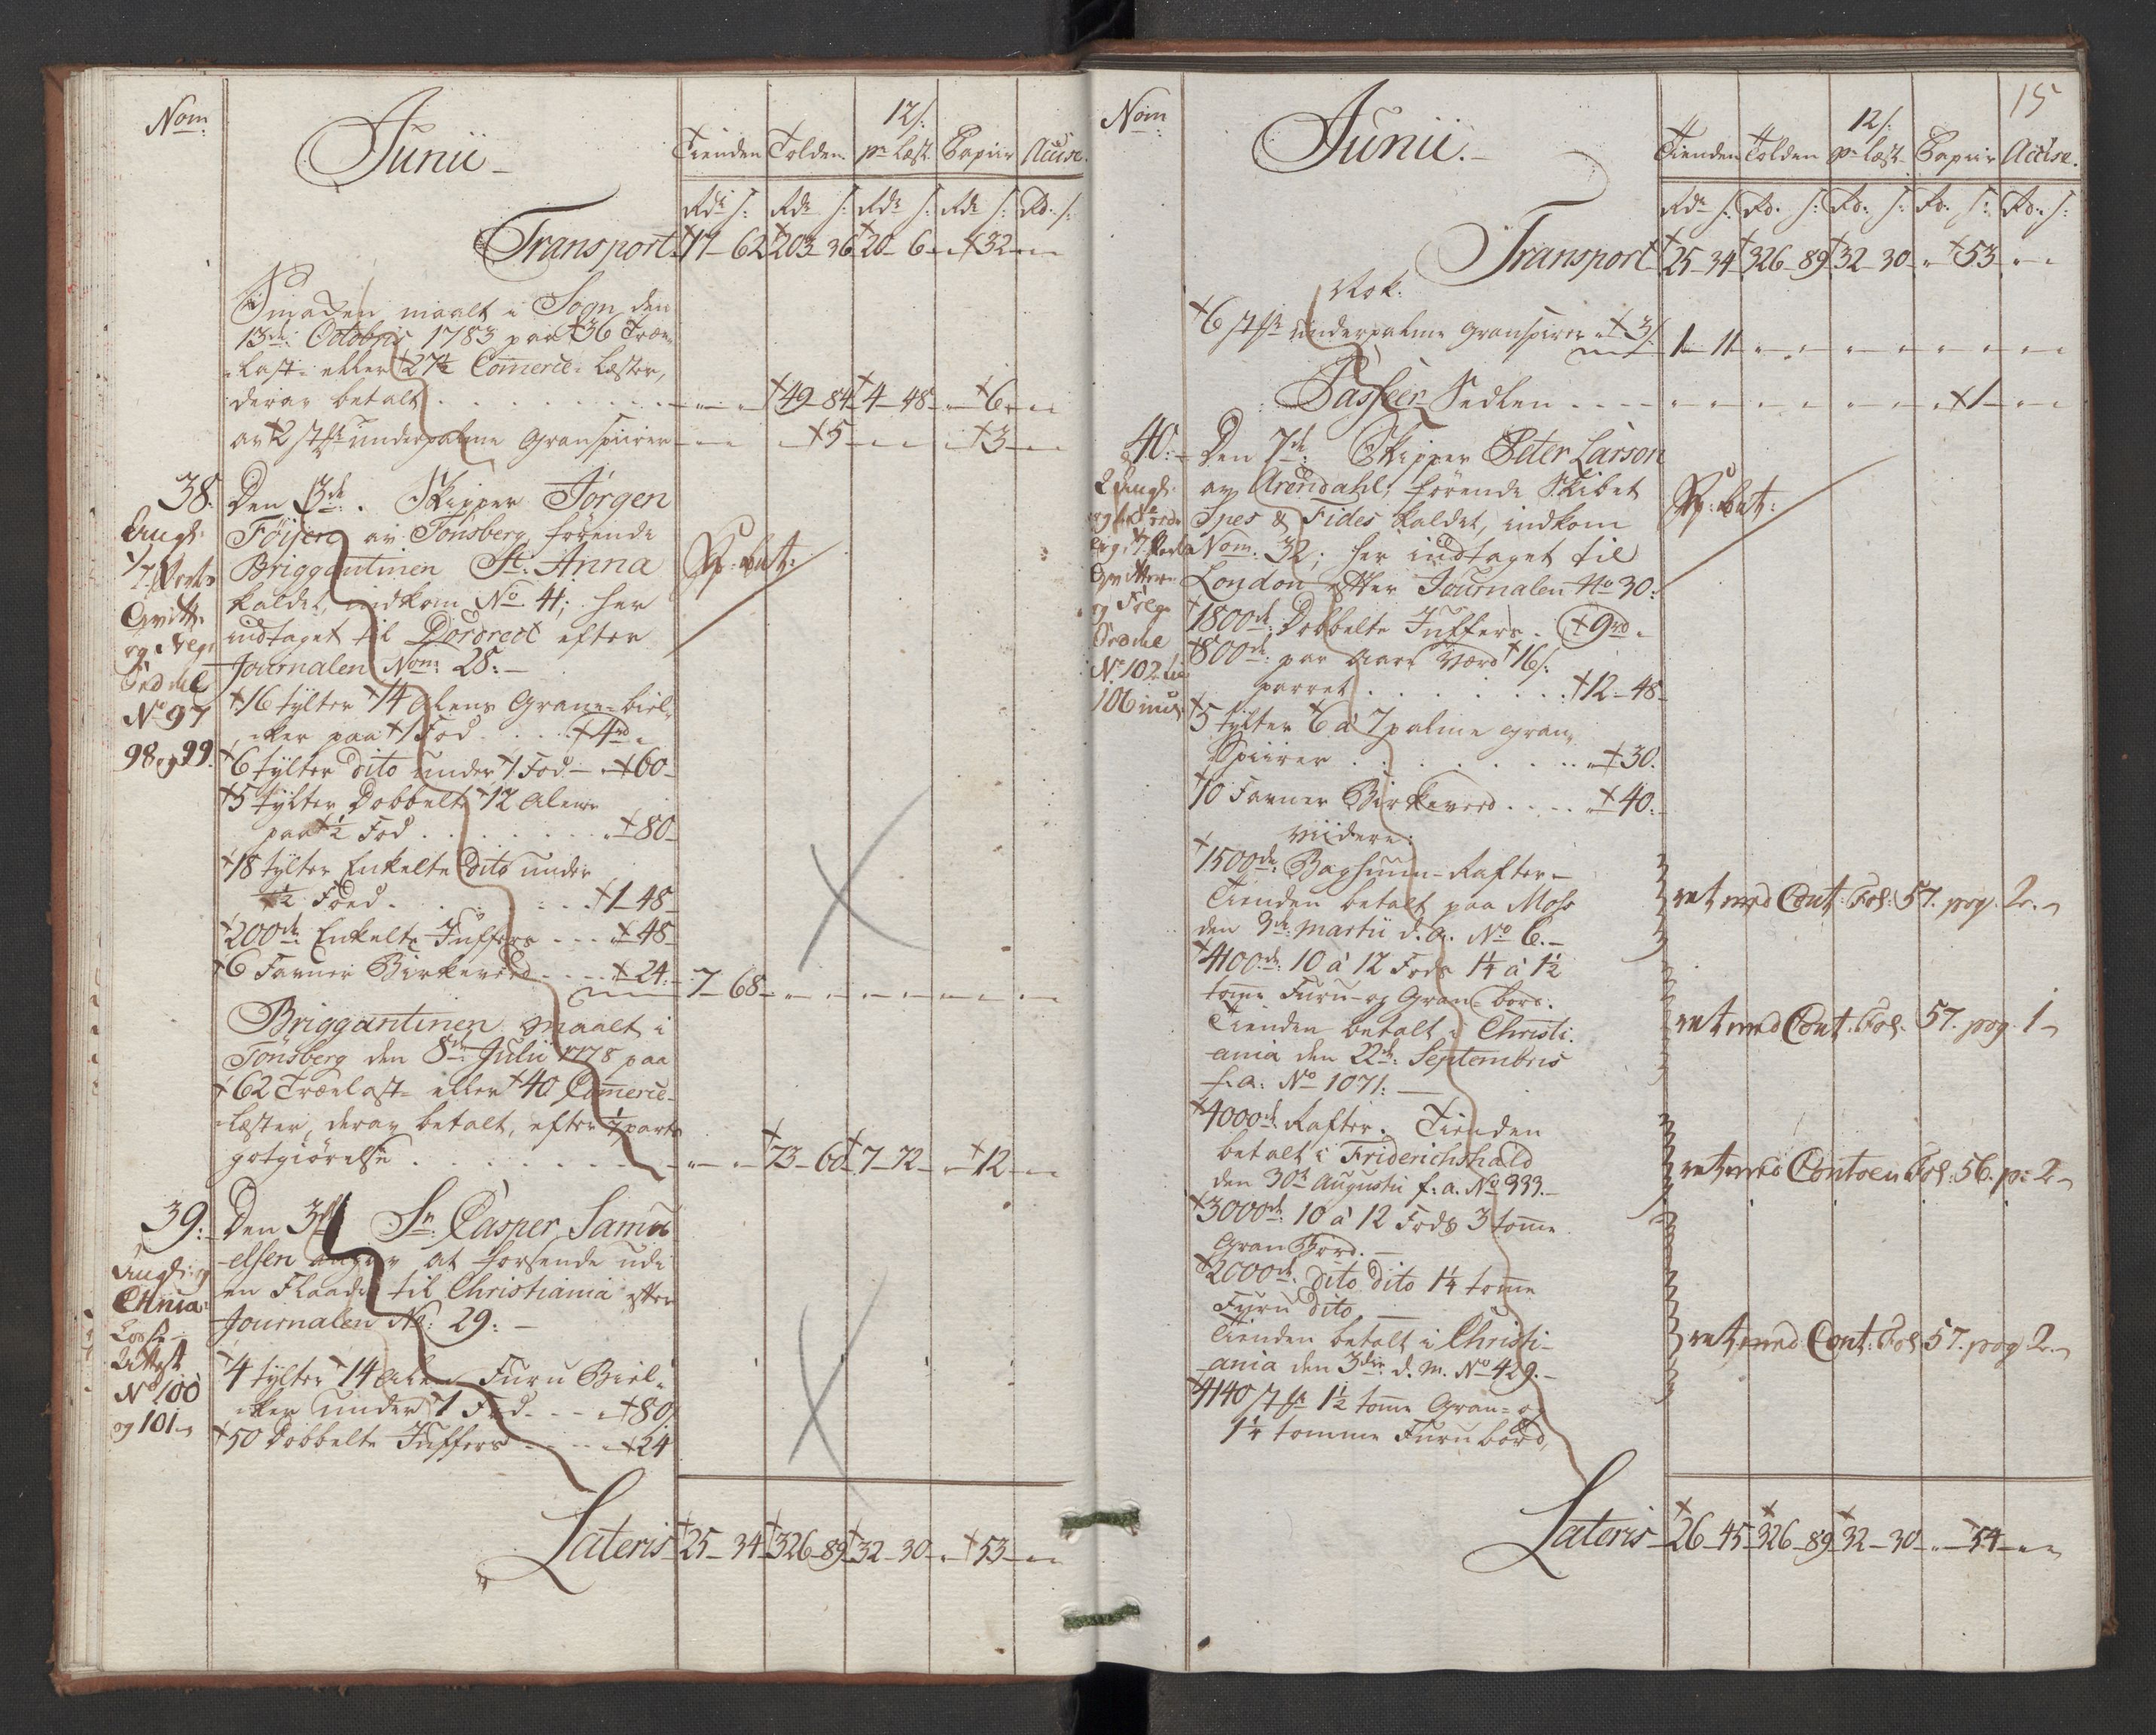 Nom:
Junii
Tienden Tolden 12 s: pr Læst Papiir Accise.
Rdr s: Rdr s: Rdr s: Rdr s: Rd. s:
Transport 17 - 62 203 - 36 20 - 6 - 32
Smaden maalt i Sogn den
13de Octobris 1783 paa 36 Træ-
Last- eller 27½ Comerce-Læster,
derav betalt 49 - 84 4 - 48 - 6
av 2 st underpalme Granspiirer - 5 - 3
38. Den 3de. Skipper Jørgen
Föiſen av Tönsberg förende
Briggantinen St. Anna
kaldet, indkom No 41; her
indtaget til Dordrect efter
Journalen Nom: 28:
16 tylter 14 Alens Grane-biel-
cker paa 1 Fod 4 rd
6 tylter dito under 1 Fod 60
5 tylter Dobbelte 12 Alens
paa ½ Fod 80
18 tylter Enkelte dito under
½ Foed 1 - 48
200de Enkelte Juffers 48
6 Favner Birkeveed 24 7 - 68
Qvitt.
No 97
98 og 99.
Briggantinen maalt i
Tönsberg den 8de Julii 1778 paa
62 Trælast- eller 40 Comerce-
Læster, derav betalt, efter parts
gotgiörelse 73 - 60 7 - 72 - 12
39: Den 3de Sr. Casper Samu
elsen angav at forsende udi
en Flaade til Christiania efter
Journalen No: 29:
4 tylter 14 Alen Furu Biel-
cker under 1 Fod 80
50 Dobbelte Juffers 24
No 100
og 101
Lateris 25 - 34 326 - 89 32 - 30 - 53
15
Nom:
Junii.
Tienden Tolden 12 s: pr Læst Papiir Accise.
Rdr s: Rd. s: Rd. s: Rd. s: Rd. s:
Transport 25 - 34 326 - 89 32 - 30 - 53
Nok:
6 st underpalme Granspirer 3 s: 1 - 11
Passeer-Sedlen 1
40: Den 7de: Skipper Peter Larson
av Arendahl, förende Skibet
Spes & Fides kaldet, indkom
Nom. 32; her indtaget til
London efter Journalen No 30:
1800de Dobbelte Juffers 9 rd
800de par Aars værd 16 s:
parret 12 - 48
5 tylter 6 à 7 palme gran-
Spiirer 30.
10 Favner Birkeveed 40.
Viidere:
1500de Baghuun-Rafter-
Tienden betalt paa Moss
den 9de Martii d. a. No 6.
4100de 10 à 12 Fods 1¼ à 1½
tome Furu- og Gran-bord.
Tienden betalt i Christi-
ania den 22de Septembris
f. a: No 1071:
4000de Rafter. Tienden
betalt i Friderichshald
den 30te Augustii f. a. No 333.
3000de 10 à 12 Fods 3 tome
Gran Bord.
2000de dito dito 1¼ tome
Furu dito
Tienden betalt i Christi-
ania den 3die d. M. No 429.
4140 st 1½ tome Gran- og
1¼ tomme Furu bord,
No 102 til
106
ret med Cont: Fol: 57. pag. 2.
ret med Cont: Fol. 57. pag. 1
ret med Contoen Fol: 56. p: 2
ret med Cont: Fol 57. pag 2.
Lateris 26 - 45 326 - 89 32 - 30 - 54